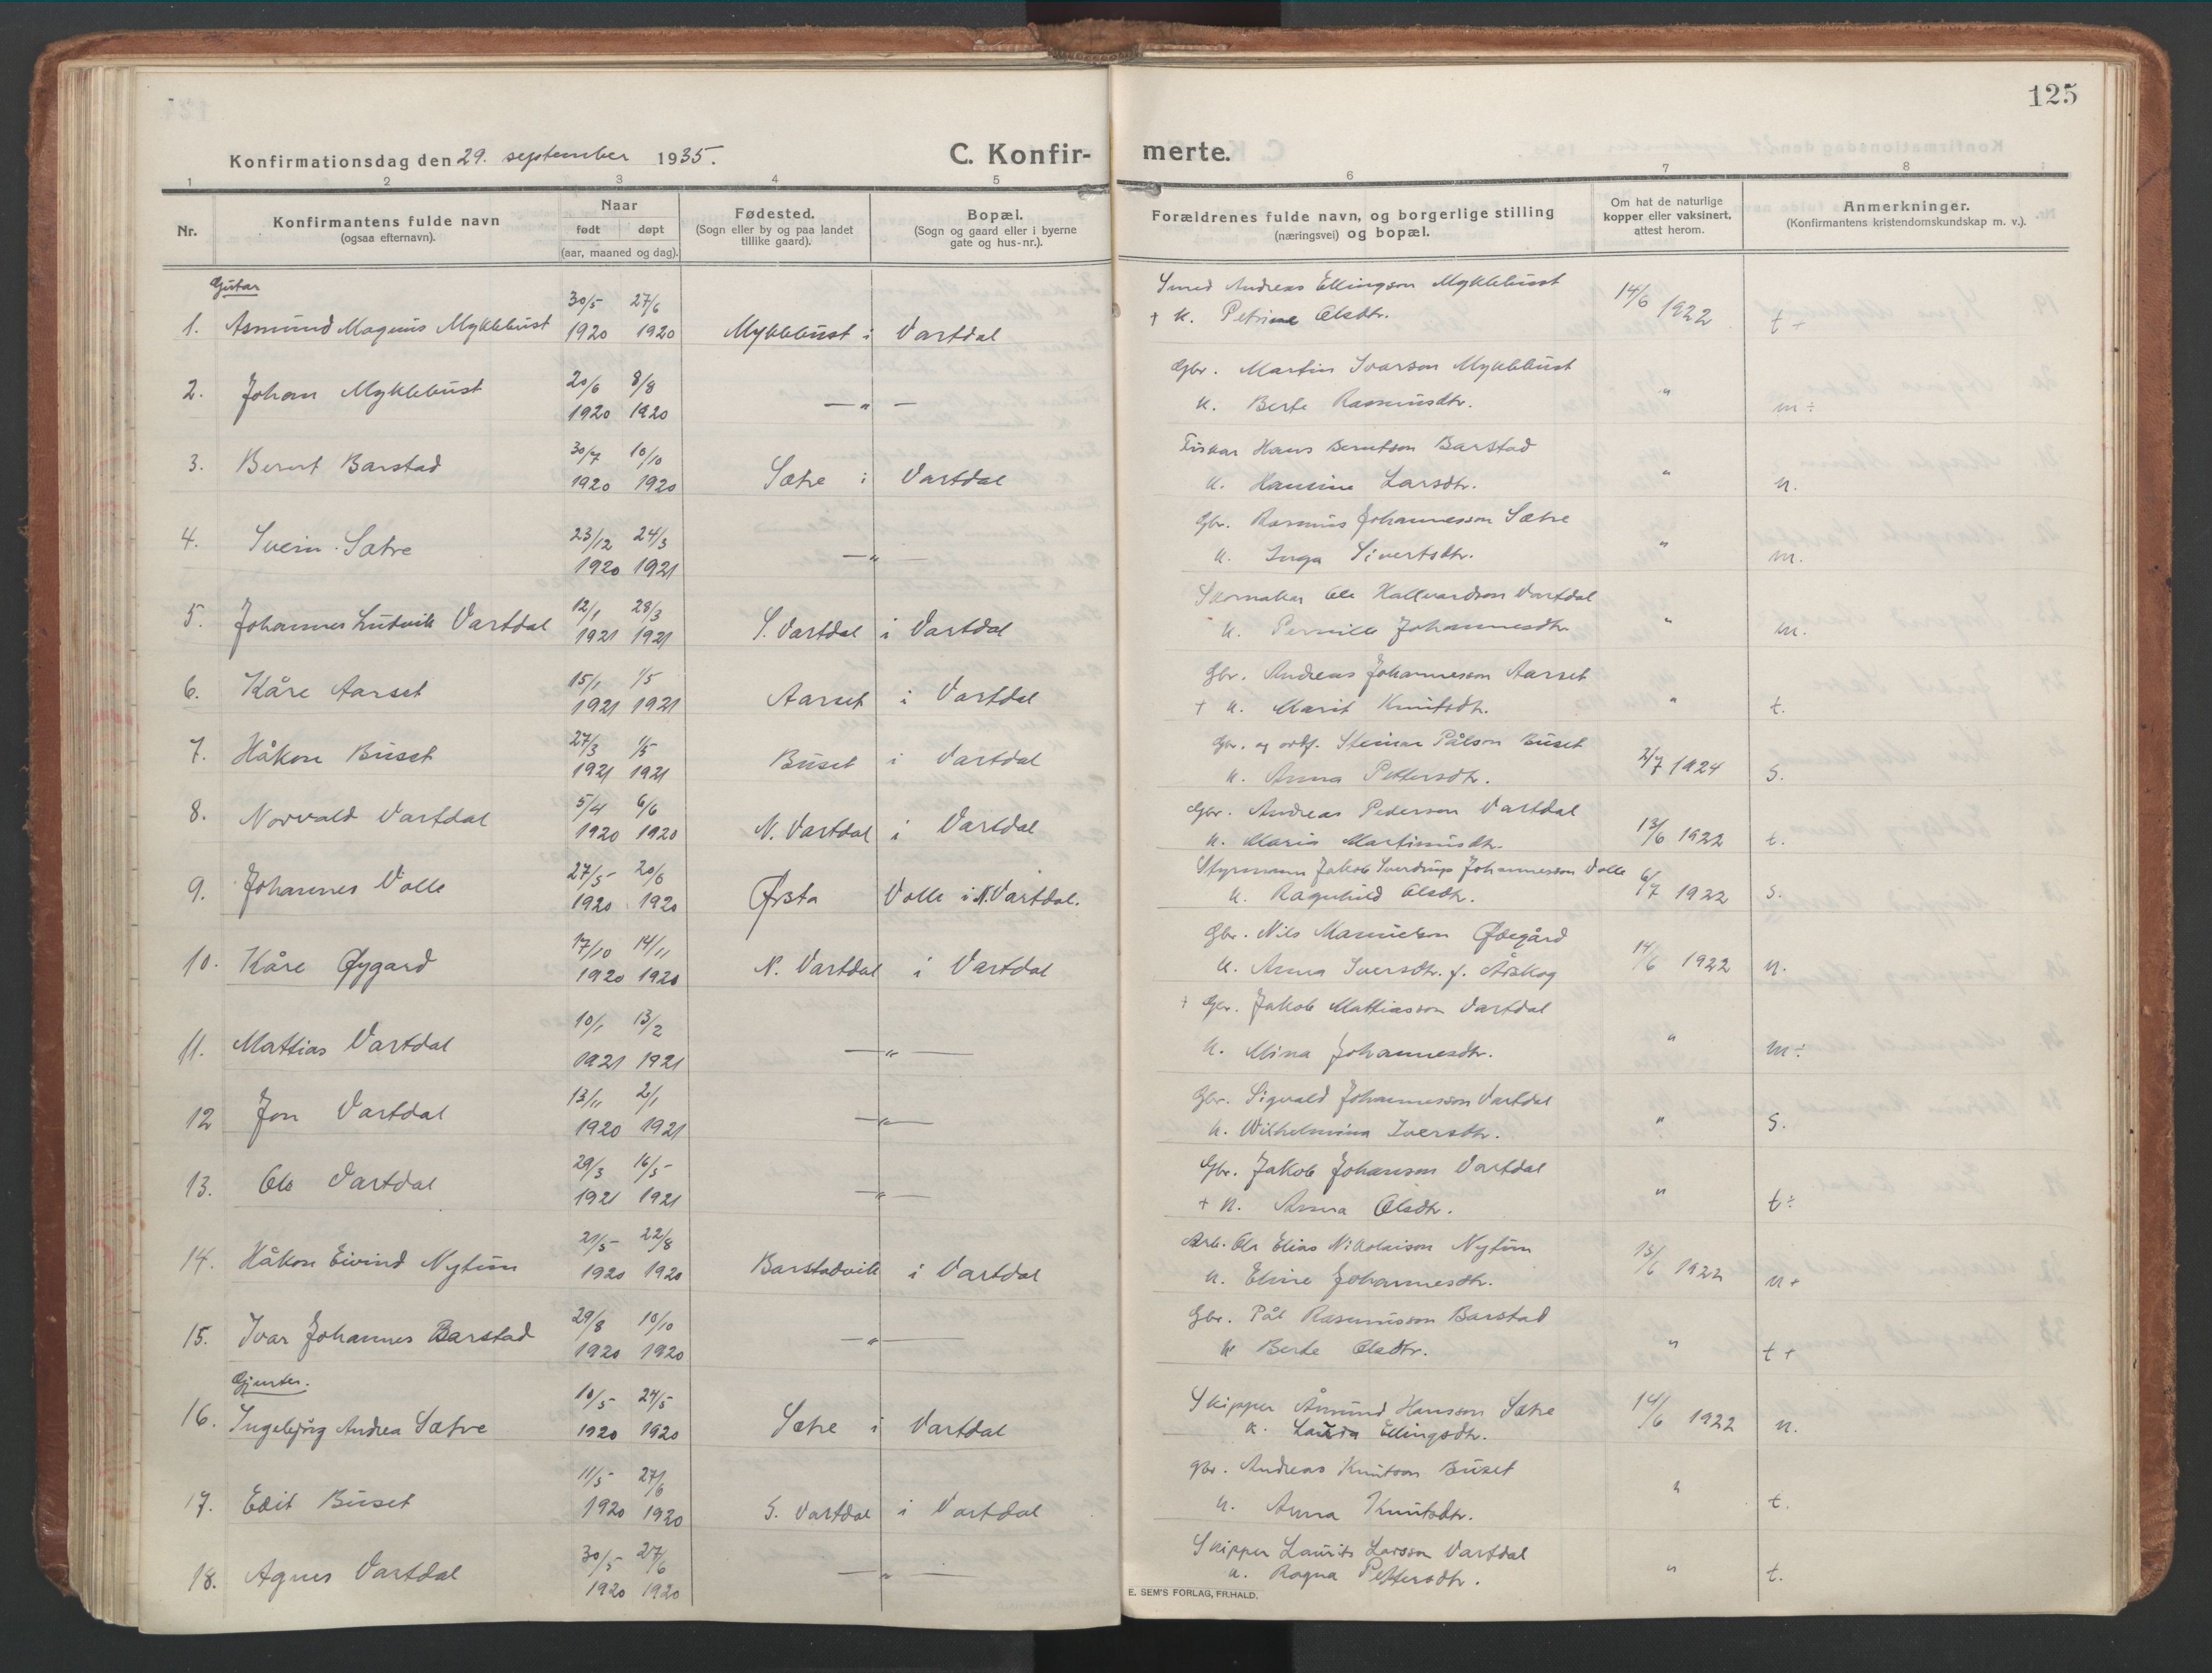 125
Konfirmationsdag den 29. september 1935.
C. Konfir-
merte.
1 2 3 4 5 6 7 8
Nr.
Konfirmantens fulde navn
(ogsaa efternavn).
Naar
født døpt
(aar, maaned og dag).
Fødested.
(Sogn eller by og paa landet
tillike gaard).
Bopæl.
(Sogn og gaard eller i byerne
gate og hus-nr.).
Forældrenes fulde navn, og borgerlige stilling
(næringsvei) og bopæl.
Om hat de naturlige
kopper eller vaksinert,
attest herom.
Anmerkninger.
(Konfirmantens kristendomskundskap m. v.).
Gutar
30/5 27/6 Smed Andreas Ellingson Myklebust 14/6 1922
1. Asmund Magnus Myklebust 1920 1920 Myklebust i Vartdal + k. Petrine Olsdtr. t +
20/6 8/8 Gbr. Martin Ivarson Myklebust
2. Johan Myklebust 1920 1920 — " — k. Berte Rasmusdtr. " m ÷
30/7 10/10 Fiskar Hans Berntson Barstad
3. Bernt Barstad 1920 1920 Sætre i Vartdal k. Hansine Larsdtr. " n.
23/12 24/3 Gbr. Rasmus Johannesson Sætre
4. Svein Sætre 1920 1921 — " — k. Inga Sivertsdtr. " m.
12/1 28/3 Skomakar Ole Hallvardson Vartdal
5. Johannes Ludvik Vartdal 1921 1921 S. Vartdal i Vartdal k. Pernille Johannesdtr. " m.
15/1 1/5 Gbr. Andreas Johannesson Aarset
6. Kåre Aarset 1921 1921 Aarset i Vartdal + k. Marit Knutsdtr. " t.
27/3 1/5 Gbr. og ordf. Steinar Pålson Buset
7. Håkon Buset 1921 1921 Buset i Vartdal k. Anna Pettersdtr. 2/7 1924 s.
5/4 6/6 Gbr. Andreas Pederson Vartdal
8. Norvald Vartdal 1920 1920 N. Vartdal i Vartdal k. Maria Martinusdtr. 13/6 1922 t.
27/5 20/6 Styrmann Jakob Sverdrup Johannesson Volle
9. Johannes Volle 1920 1920 Ørsta Volle i N. Vartdal. k. Ragnhild Olsdtr. 6/7 1922 s.
17/10 14/11 Gbr. Nils Ødegård
10. Kåre Øygard 1920 1920 N. Vartdal i Vartdal k. Anna Iversdtr. f. Årskog 14/6 1922 n.
10/1 13/2 + Gbr. Jakob Mattiasson Vartdal
11. Mattias Vartdal 1921 1921 — " — k. Mina Johannesdtr. " m ÷
13/11 2/1 Gbr. Sigvald Johannesson Vartdal
12 Jon Vartdal 1920 1921 — " — k. Wilhelmina Iversdtr. " s.
29/3 16/5 Gbr. Jakob Johanson Vartdal
13. Ole Vartdal 1921 1921 — " — + k. Anna Olsdtr. " t ÷
21/5 22/8 Arb. Ole Elias Nikolaison Nytun
14. Håkon Eivind Nytun 1920 1920 Barstadvik i Vartdal k. Eline Johannesdtr. 13/6 1922 n +
29/8 10/10 Gbr. Pål Rasmusson Barstad
15. Ivar Johannes Barstad 1920 1920 — " — k Berte Olsdtr. " t +
Gjenter.
10/5 24/5 Skipper Åsmund Hansson Sætre
16. Ingebjørg Andrea Sætre 1920 1920 Sætre i Vartdal k. Laura Ellingsdtr. 14/6 1922 n.
11/5 27/6 Gbr. Andreas Knutson Buset
17. Edit Buset 1920 1920 S. Vartdal i Vartdal k. Anna Knutsdtr. " t.
30/5 27/6 Skipper Laurits Larsson Vartdal
18. Agnes Vartdal 1920 1920 — " — k. Ragna Pettersdtr. " t.
E. SEM'S FORLAG, FR.HALD.